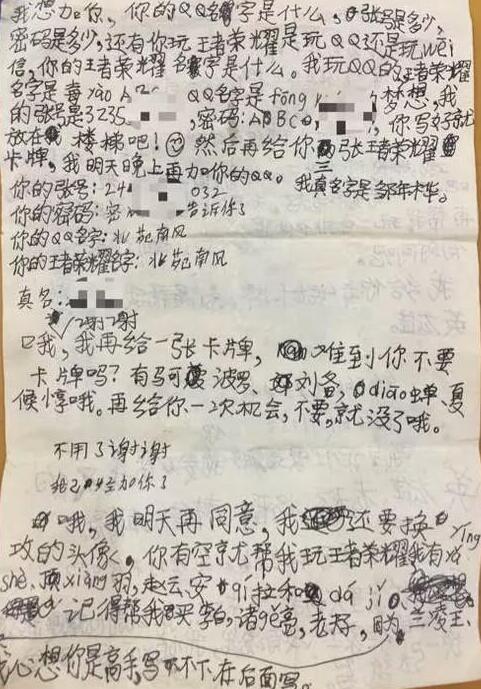 我想加你，你的QQ名字是什么，张号是多少，
密码是多少，还有你玩王者荣耀是玩QQ还是玩wēi
信，你的王者荣耀名字是什么。我玩QQ的王者荣耀
名字是 yào QQ名字是fōng 梦想，我
的张号是3235 ，密码：ABBC ，你写好就
放在 楼梯吧！然后再给你三张王者荣耀
卡牌，我明天晚上再加你的QQ。 我真名字是 年华。
你的张号：24 032
你的密码：密 告诉你了
你的QQ名字：北苑南风
你的王者荣耀名字：北苑南风
真名：
谢谢
口我，我再给一张卡牌， 难到你不要
卡牌吗？有马可波罗、刘备，diāo蝉、夏
候惇哦。再给你一次机会，不要，就没了哦。
不用了谢谢
我 加你了
哦，我明天再同意，我 还要换
yīng
攻的头像，你有空就帮我玩王者荣耀我有yà
shè、项xiàng羽，赵云、安qí拉和dá jǐ、
记得帮我买李白，诸gě亮， 因为兰凌王、
心想你是高手，写不下，在后面写。